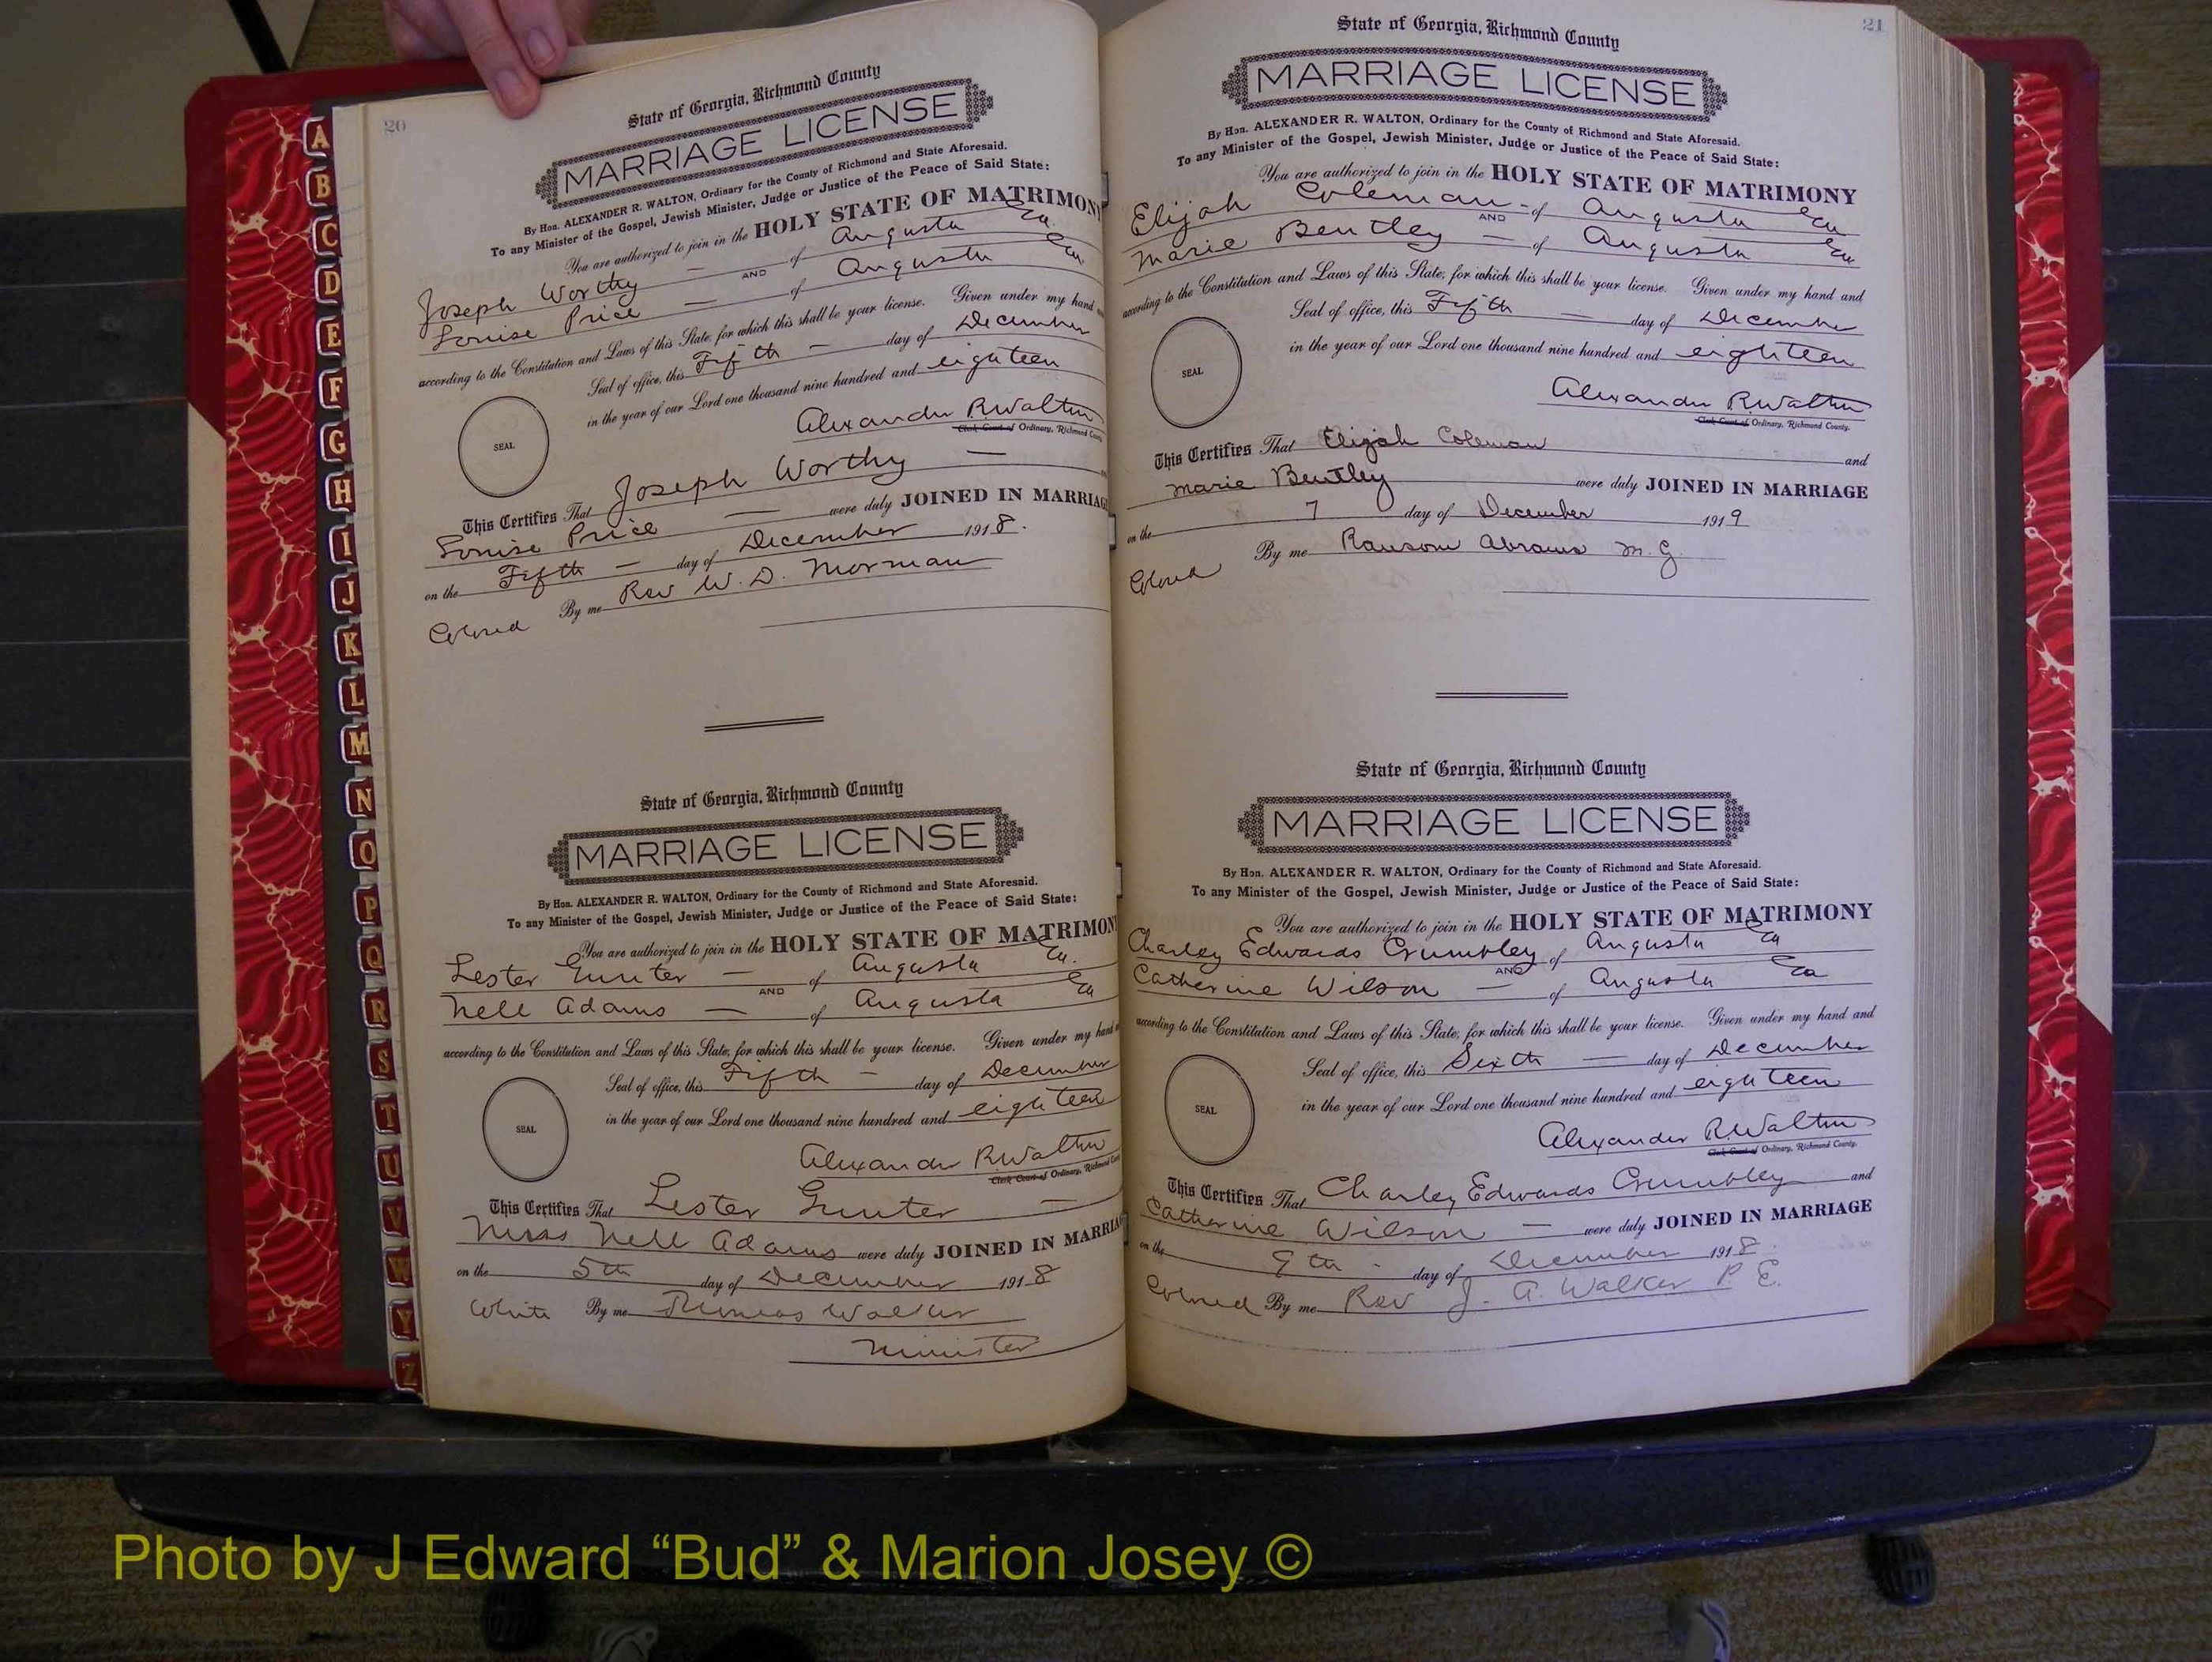 20
State of Georgia, Richmond County
MARRIAGE LICENSE
By Hon. ALEXANDER R. WALTON, Ordinary for the County of Richmond and State Aforesaid.
To any Minister of the Gospel, Jewish Minister, Judge or Justice of the Peace of Said State:
You are authorized to join in the HOLY STATE OF MATRIMONY
Joseph Worthy — of Augusta Ga.
AND
Louise Price — of Augusta Ga.
according to the Constitution and Laws of this State, for which this shall be your license. Given under my hand
Seal of office, this Fifth — day of December
in the year of our Lord one thousand nine hundred and eighteen
SEAL
Alexander R. Walton
Clerk Court of Ordinary, Richmond County
This Certifies That Joseph Worthy —
Louise Price — were duly JOINED IN MARRIAGE
on the Fifth — day of December 1918.
Colored By me Rev W. D. Morman
State of Georgia, Richmond County
MARRIAGE LICENSE
By Hon. ALEXANDER R. WALTON, Ordinary for the County of Richmond and State Aforesaid.
To any Minister of the Gospel, Jewish Minister, Judge or Justice of the Peace of Said State:
You are authorized to join in the HOLY STATE OF MATRIMON
Lester Gunter — of Augusta Ga.
AND
Nell Adams — of Augusta Ga
according to the Constitution and Laws of this State, for which this shall be your license. Given under my hand
Seal of office, this Fifth — day of December
in the year of our Lord one thousand nine hundred and eighteen
SEAL
Alexander R. Walton
Clerk Court of Ordinary, Richmond Count
This Certifies That Lester Gunter —
Miss Nell Adams were duly JOINED IN MARRIA
on the 5th day of December 1918
White By me Thomas Walker
Minister
21
State of Georgia, Richmond County
MARRIAGE LICENSE
By Hon. ALEXANDER R. WALTON, Ordinary for the County of Richmond and State Aforesaid.
To any Minister of the Gospel, Jewish Minister, Judge or Justice of the Peace of Said State:
You are authorized to join in the HOLY STATE OF MATRIMONY
Elijah Coleman - of Augusta Ga
AND
Marie Bentley — of Augusta Ga
according to the Constitution and Laws of this State, for which this shall be your license. Given under my hand and
Seal of office, this Fifth — day of December
in the year of our Lord one thousand nine hundred and eighteen
SEAL
Alexander R. Walton
Clerk Court of Ordinary, Richmond County.
This Certifies That Elijah Coleman and
Marie Bentley were duly JOINED IN MARRIAGE
on the 7 day of December 1919
Colored By me Ransom Abrams M. G.
State of Georgia, Richmond County
MARRIAGE LICENSE
By Hon. ALEXANDER R. WALTON, Ordinary for the County of Richmond and State Aforesaid.
To any Minister of the Gospel, Jewish Minister, Judge or Justice of the Peace of Said State:
You are authorized to join in the HOLY STATE OF MATRIMONY
Charley Edwards Crumbley of Augusta Ga
AND
Catherine Wilson — of Augusta Ga
according to the Constitution and Laws of this State, for which this shall be your license. Given under my hand and
Seal of office, this Sixth — day of December
in the year of our Lord one thousand nine hundred and eighteen
SEAL
Alexander R. Walton
Clerk Court of Ordinary, Richmond County.
This Certifies That Charley Edwards Crumbley and
Catherine Wilson — were duly JOINED IN MARRIAGE
on the 9th - day of December 1918.
Colored By me Rev J. A. Walker P. E.
A
B
C
D
E
F
G
H
I
J
K
L
M
N
O
P
Q
R
S
T
U
V
W
Y
Z
Photo by J Edward “Bud” & Marion Josey ©